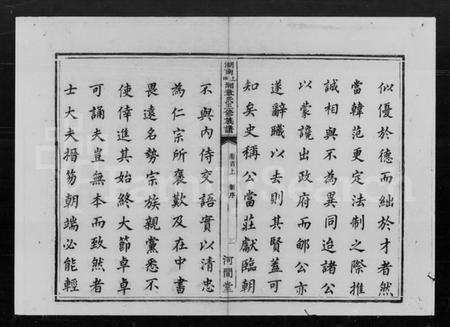 似優於德而絀於才者然
當韓范更定法制之際推
誠相與不為異同迨諸公
以蒙讒出政府而郇公亦
遂辭職以去則其賢蓋可
知矣史稱公當莊獻臨朝
湖南上湘章氏三修族譜
卷首上 新序
河間堂
不與內侍交語實以清忠
為仁宗所褒歎及在中書
畏遠名勢宗族親黨悉不
使倖進其始終大節卓卓
可誦夫豈無本而致然者
士大夫搢笏朝端必能輕